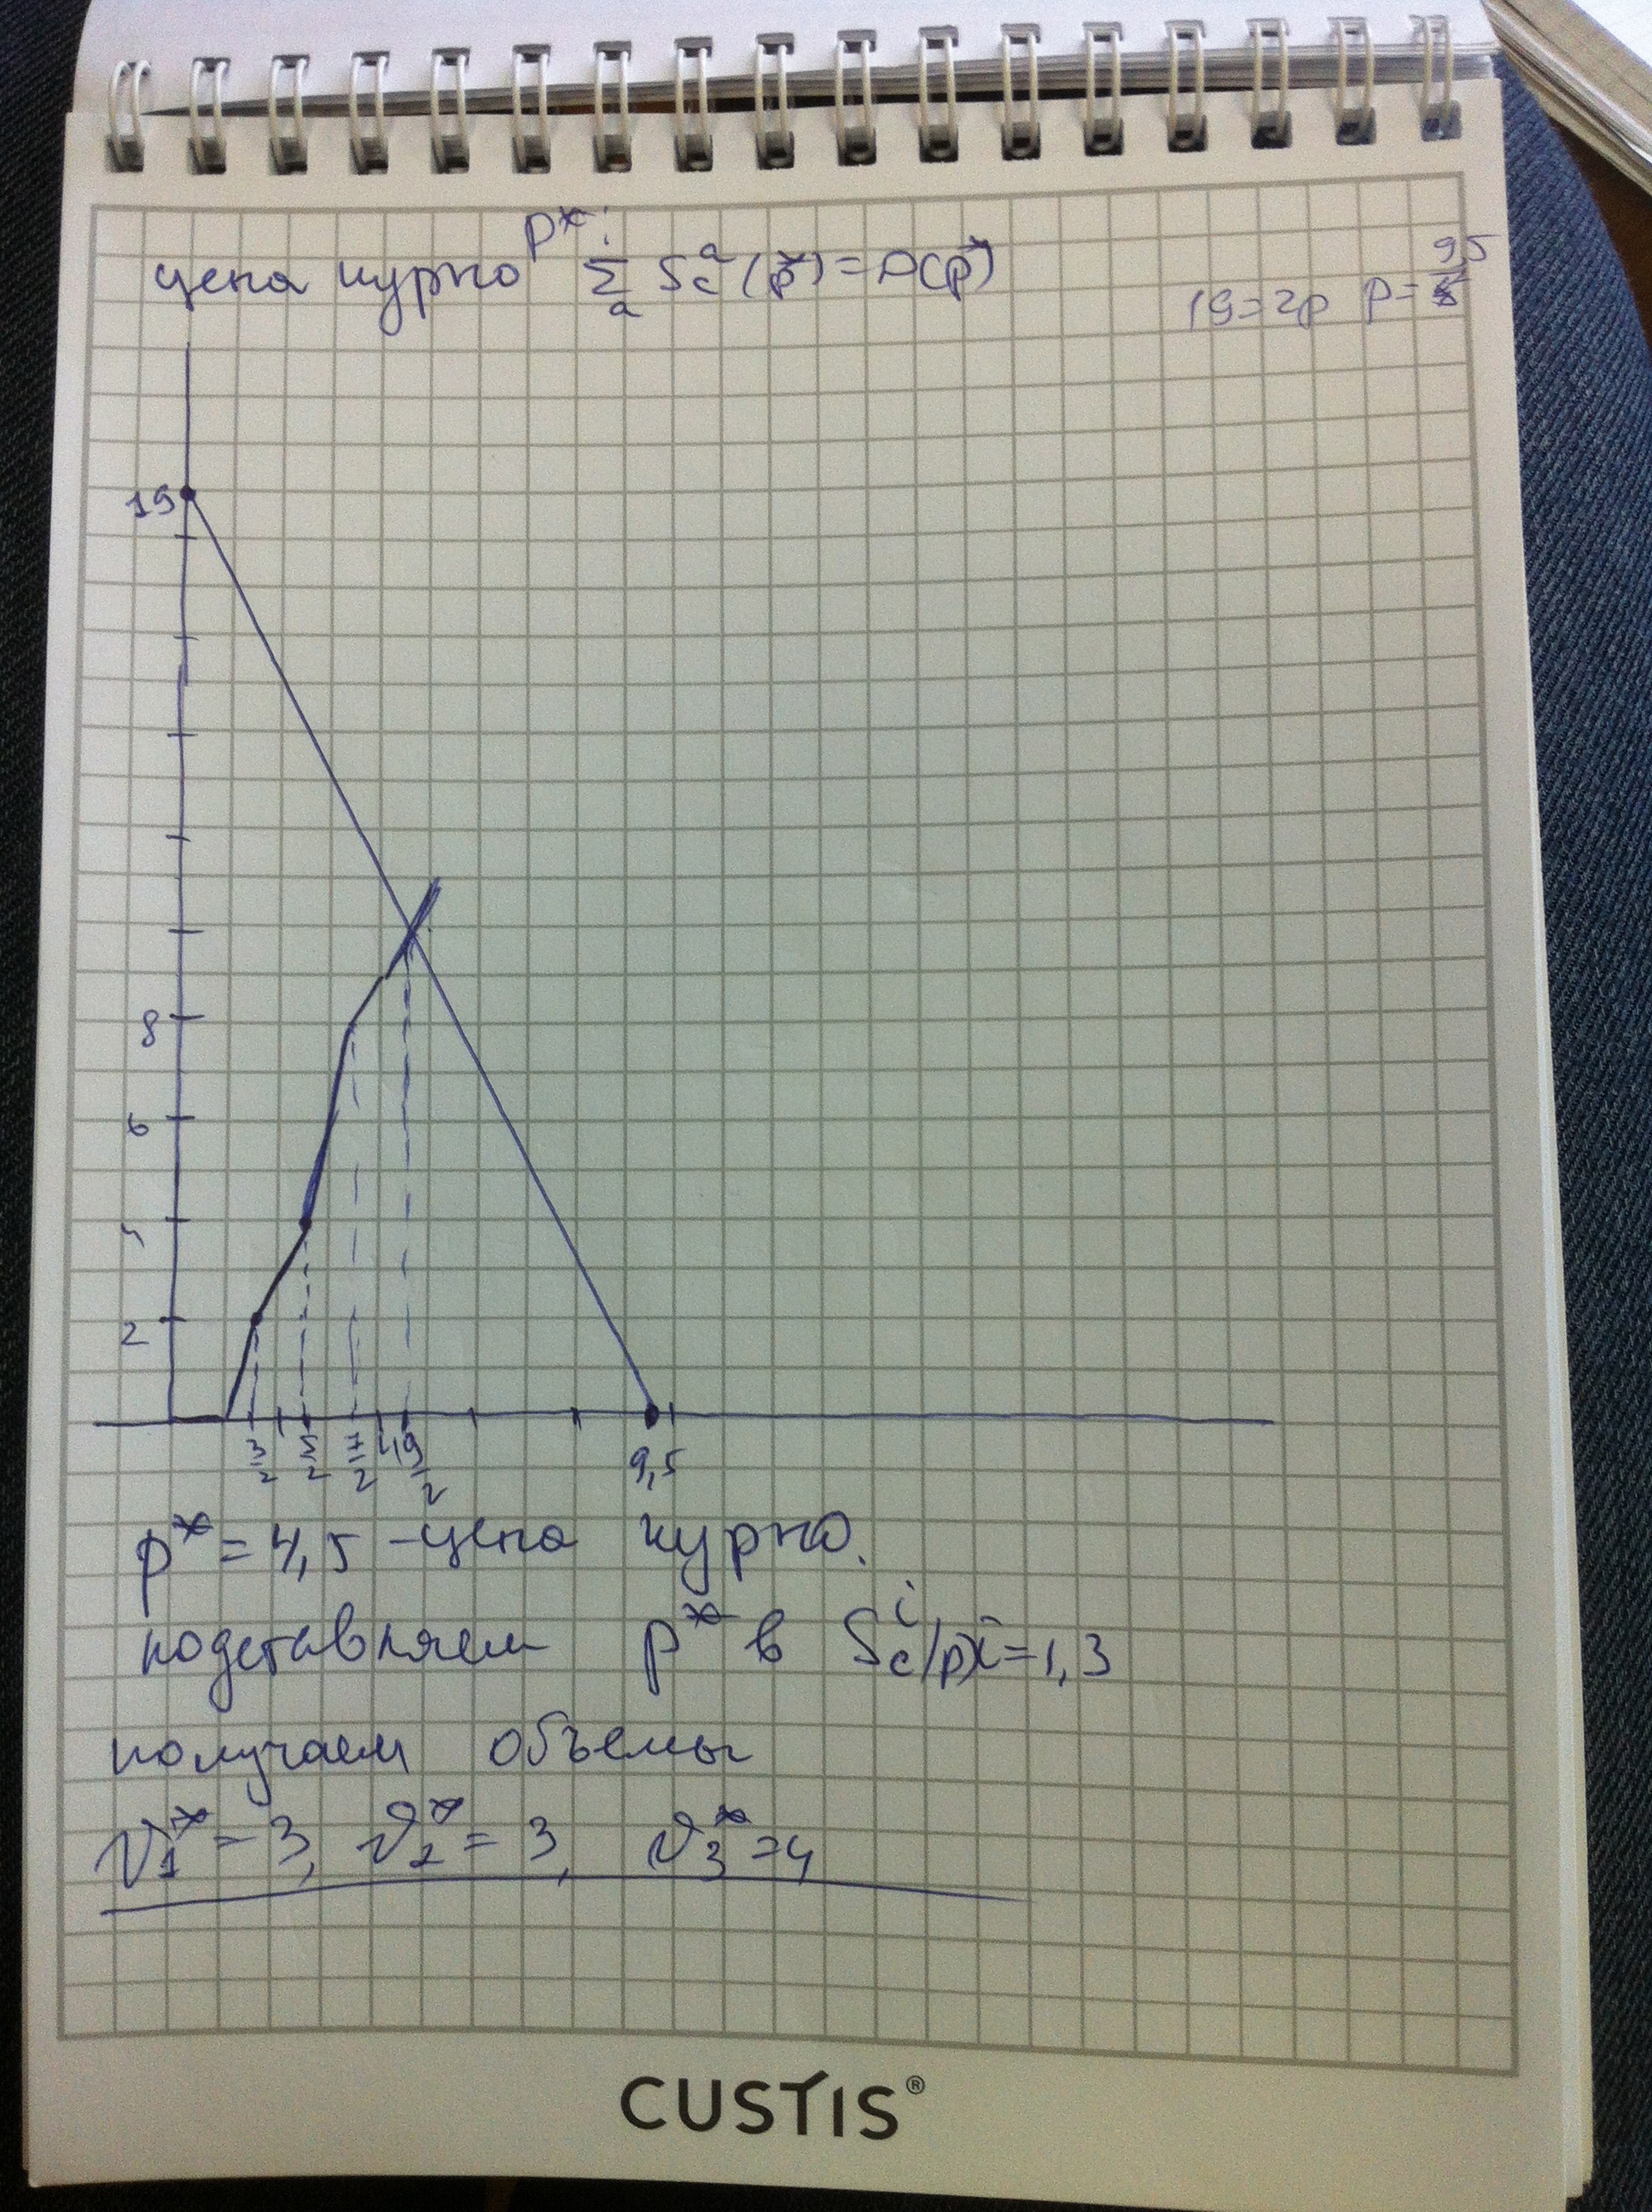 p*:
цена курно Σ Sᵃ_c (p*) = D(p*)
a
19=2p p= 9,5
19
8
6
4
2
3/2 5/2 7/2 4 9/2 9,5
p* = 4,5 - цена курно.
подставляем p* в Sⁱ_c(p) i=1,3
получаем объемы
V₁* = 3, V₂* = 3, V₃* = 4
CUSTIS®